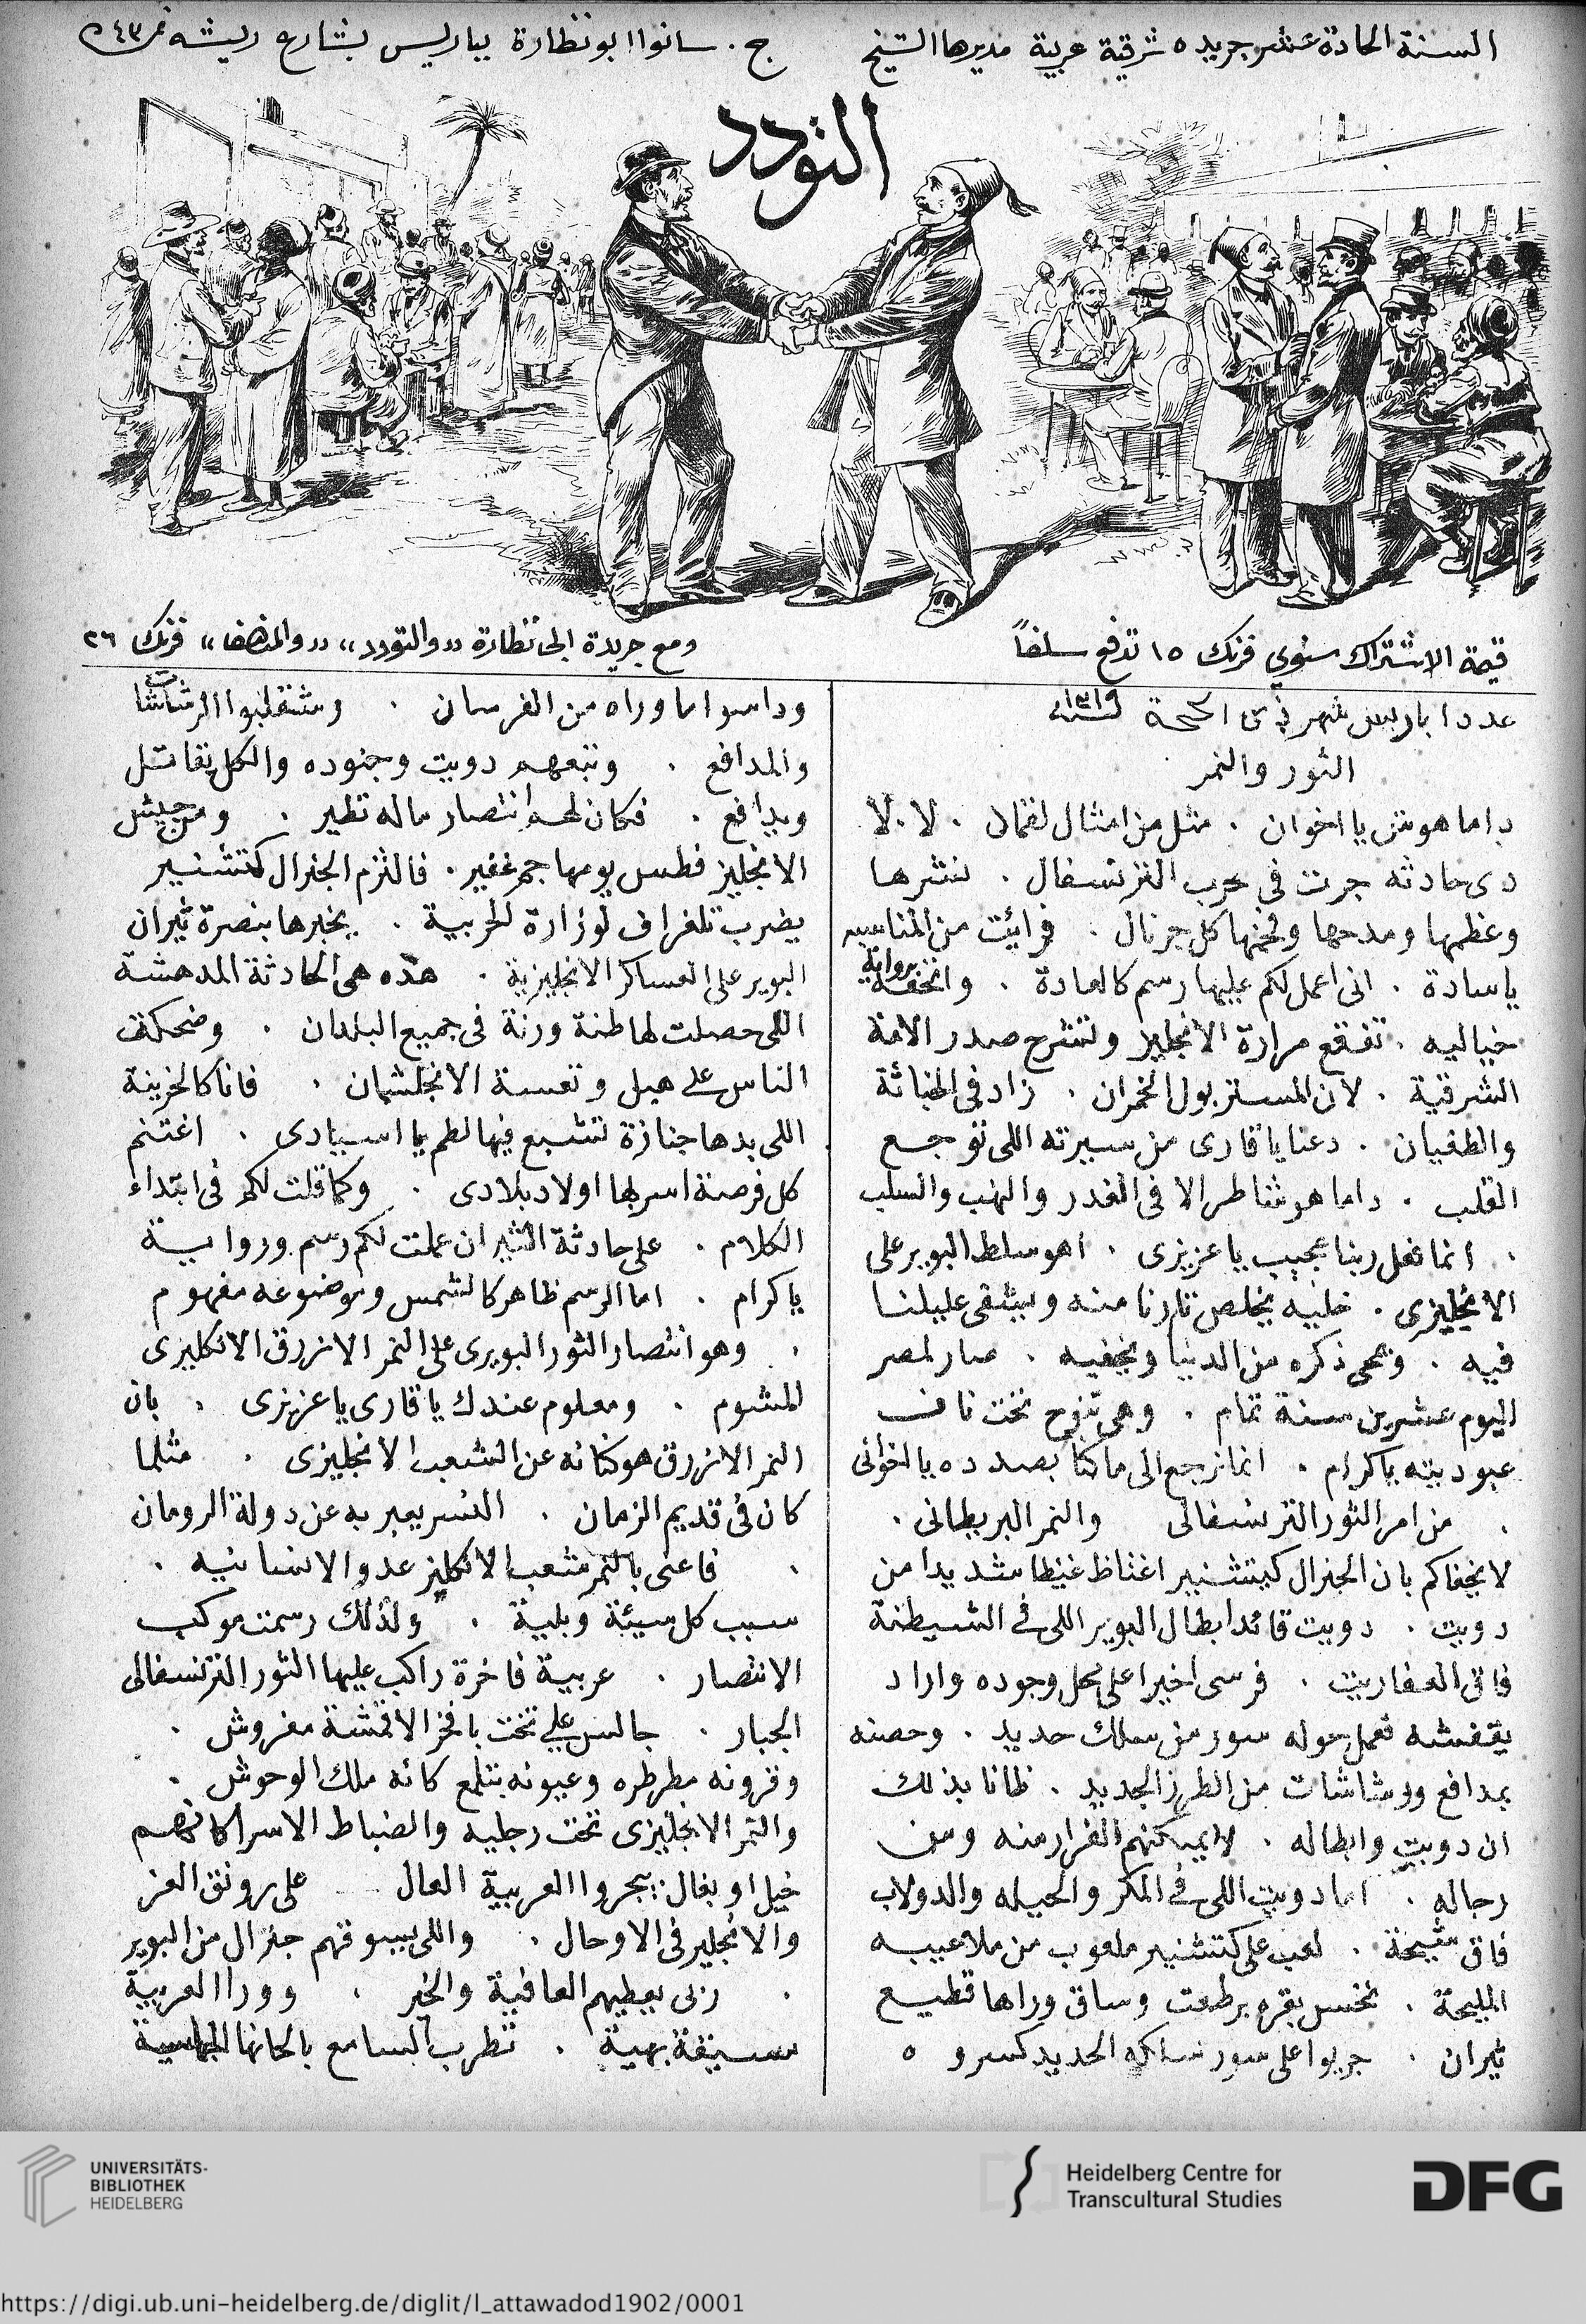 السنة الحادة عشر جريده شرقية عربية مديرها الشيخ ج. سانوا ابو نظارة بباريس بشارع ريشه نمر ٤٣
التودد
قيمة الاشتراك سنوي فرنك ١٥ تدفع سلفاً
ومع جريدة ابى نظارة «والتودد» «والمنصف» فرنك ٢٦
عدد ١ باريس شهر ذى الحجة سنة ١٣١٩
الثور والنمر
داما هوش يا اخوان . مثل من امثال لقمان . لا . لا
دى حادثه جرت فى حرب الترنسفال . نشرها
وعظمها ومدحها وفخمها كل جرنال . فرائيت من المناسبه
يا سادة . انى اعمل لكم عليها رسم كالعادة . واتحفه برواية
خياليه . تفقع مرارة الانجليز وتشرح صدر الامة
الشرقية . لان المستر بول الخمران . زاد فى الخباثة
والطغيان . دعنا يا قارى من سيرته اللى توجع
القلب . داما هو شاطر الا فى الغدر والنهب والسلب
. انما فعل ربنا عجيب يا عزيزى . اهو سلط البوير على
الانجليزى . خليه يخلص تارنا منه ويشفى عليلنا
فيه . ويمحى ذكره من الدنيا ويخفيه . صار لمصر
اليوم عشرين سنة تمام . وهى تنوح تحت ناف
عبوديته يا كرام . انما نرجع الى ما كنا بصدده يا اخوانى
. من امر الثور الترنسفالى والنمر البريطانى .
لا يخفاكم بان الجنرال كيتشنير اغتاظ غيظا شديدا من
دويت . دويت قائد ابطال البوير اللى فى الشيطنة
فاق العفاريت . فرسى اخيرا على محل وجوده واراد
يقفشه فعمل حوله سور من سلك حديد . وحصنه
بمدافع ورشاشات من الطرز الجديد . ظانا بذلك
ان دويت وابطاله . لا يمكنهم الفرار منه ومن
رجاله . اما دويت اللى فى المكر والحيله والدولاب
فاق شيحة . لعب على كتشنير ملعوب من ملاعيبه
المليحة . نخس بقره برطعت وساق وراها قطيع
ثيران . جريوا على سور سلك الحديد كسروه
وداسوا ما وراه من الفرسان . وشقلبوا الرشاشات
والمدافع . وتبعهم دويت وجنوده والكل يقاتل
ويدافع . فكان لهم انتصار ماله نظير . ومن جيش
الانجليز فطس يومها جم غفير . فالتزم الجنرال كتشنير
يضرب تلغراف لوزارة الحربية . يخبرها بنصرة ثيران
البوير على العساكر الانجليزية . هذه هى الحادثة المدهشة
اللى حصلت لها طنة ورنة فى جميع البلدان . وضحكت
الناس على هبل وتعسة الانجلشمان . فانا كالحزينة
اللى بدها جنازة تشبع فيها لطم يا اسيادى . اغتنم
كل فرصة اسر بها اولاد بلادى . وكما قلت لكم فى ابتداء
الكلام . على حادثة الثيران عملت لكم رسم ورواية
يا كرام . اما الرسم ظاهر كالشمس وموضوعه مفهوم
. وهو انتصار الثور البويرى على النمر الازرق الانكليزى
المشوم . ومعلوم عندك يا قارى يا عزيزى . بان
النمر الازرق هو كنايه عن الشعب الانجليزى . مثلما
كان فى قديم الزمان . النسر يعبر به عن دولة الرومان
. فاعنى بالنمر شعب الانكليز عدو الانسانيه .
سبب كل سيئة وبلية . ولذلك رسمت موكب
الانتصار . عربية فاخرة راكب عليها الثور الترنسفالى
الجبار . جالس على تخت بافخر الاقمشة مفروش .
وقرونه مطرطره وعيونه بتلمع كانه ملك الوحوش .
والنمر الانجليزى تحت رجليه والضباط الاسرا كانهم
خيل او بغال بيجروا العربية العال على رونق العز
والانجليز فى الاوحال . واللى بيسوقهم جنرال من البوير
. ربى يعطيهم العافية والخير . وورا العربية
سنيفة بهية . تطرب السامع بالحانها
UNIVERSITÄTS-
BIBLIOTHEK
HEIDELBERG
Heidelberg Centre for
Transcultural Studies
DFG
https://digi.ub.uni-heidelberg.de/diglit/l_attawadod1902/0001